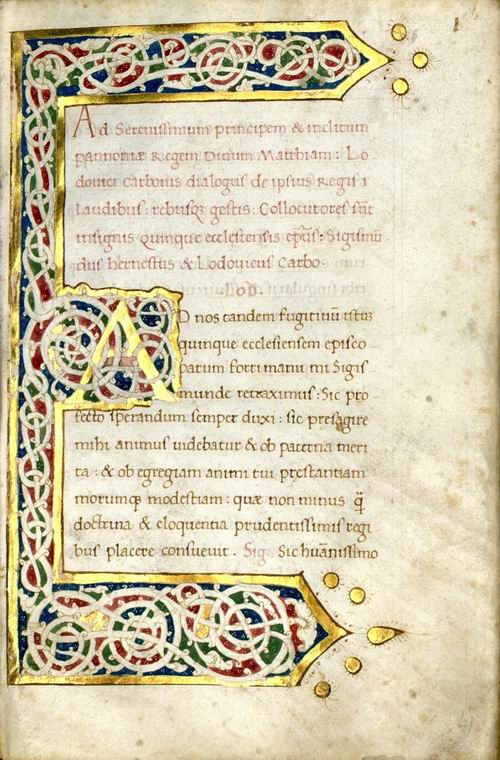 Ad Serenissimum principem & inclitum
pannoniæ Regem Diuum Matthiam: Lo
douici Carbonis dialogus de ipsius Regis
laudibus: rebusq; gestis: Collocutores sūt
insignis quinque ecclesiensis ep̄us: Sigismū
dus hernestus & Lodouicus Carbo.
AD nos tandem fugitiuū istū
quinque ecclesiensem episco
patum forti manu mi Sigis
munde retraximus: Sic pro
fecto sperandum semper duxi: sic presagire
mihi animus uidebatur & ob paterna meri
ta: & ob egregiam animi tui prestantiam
morumq; modestiam: quæ non minus q̄
doctrina & eloquentia prudentissimis regi
bus placere consueuit. Sig. Sic huāissimo